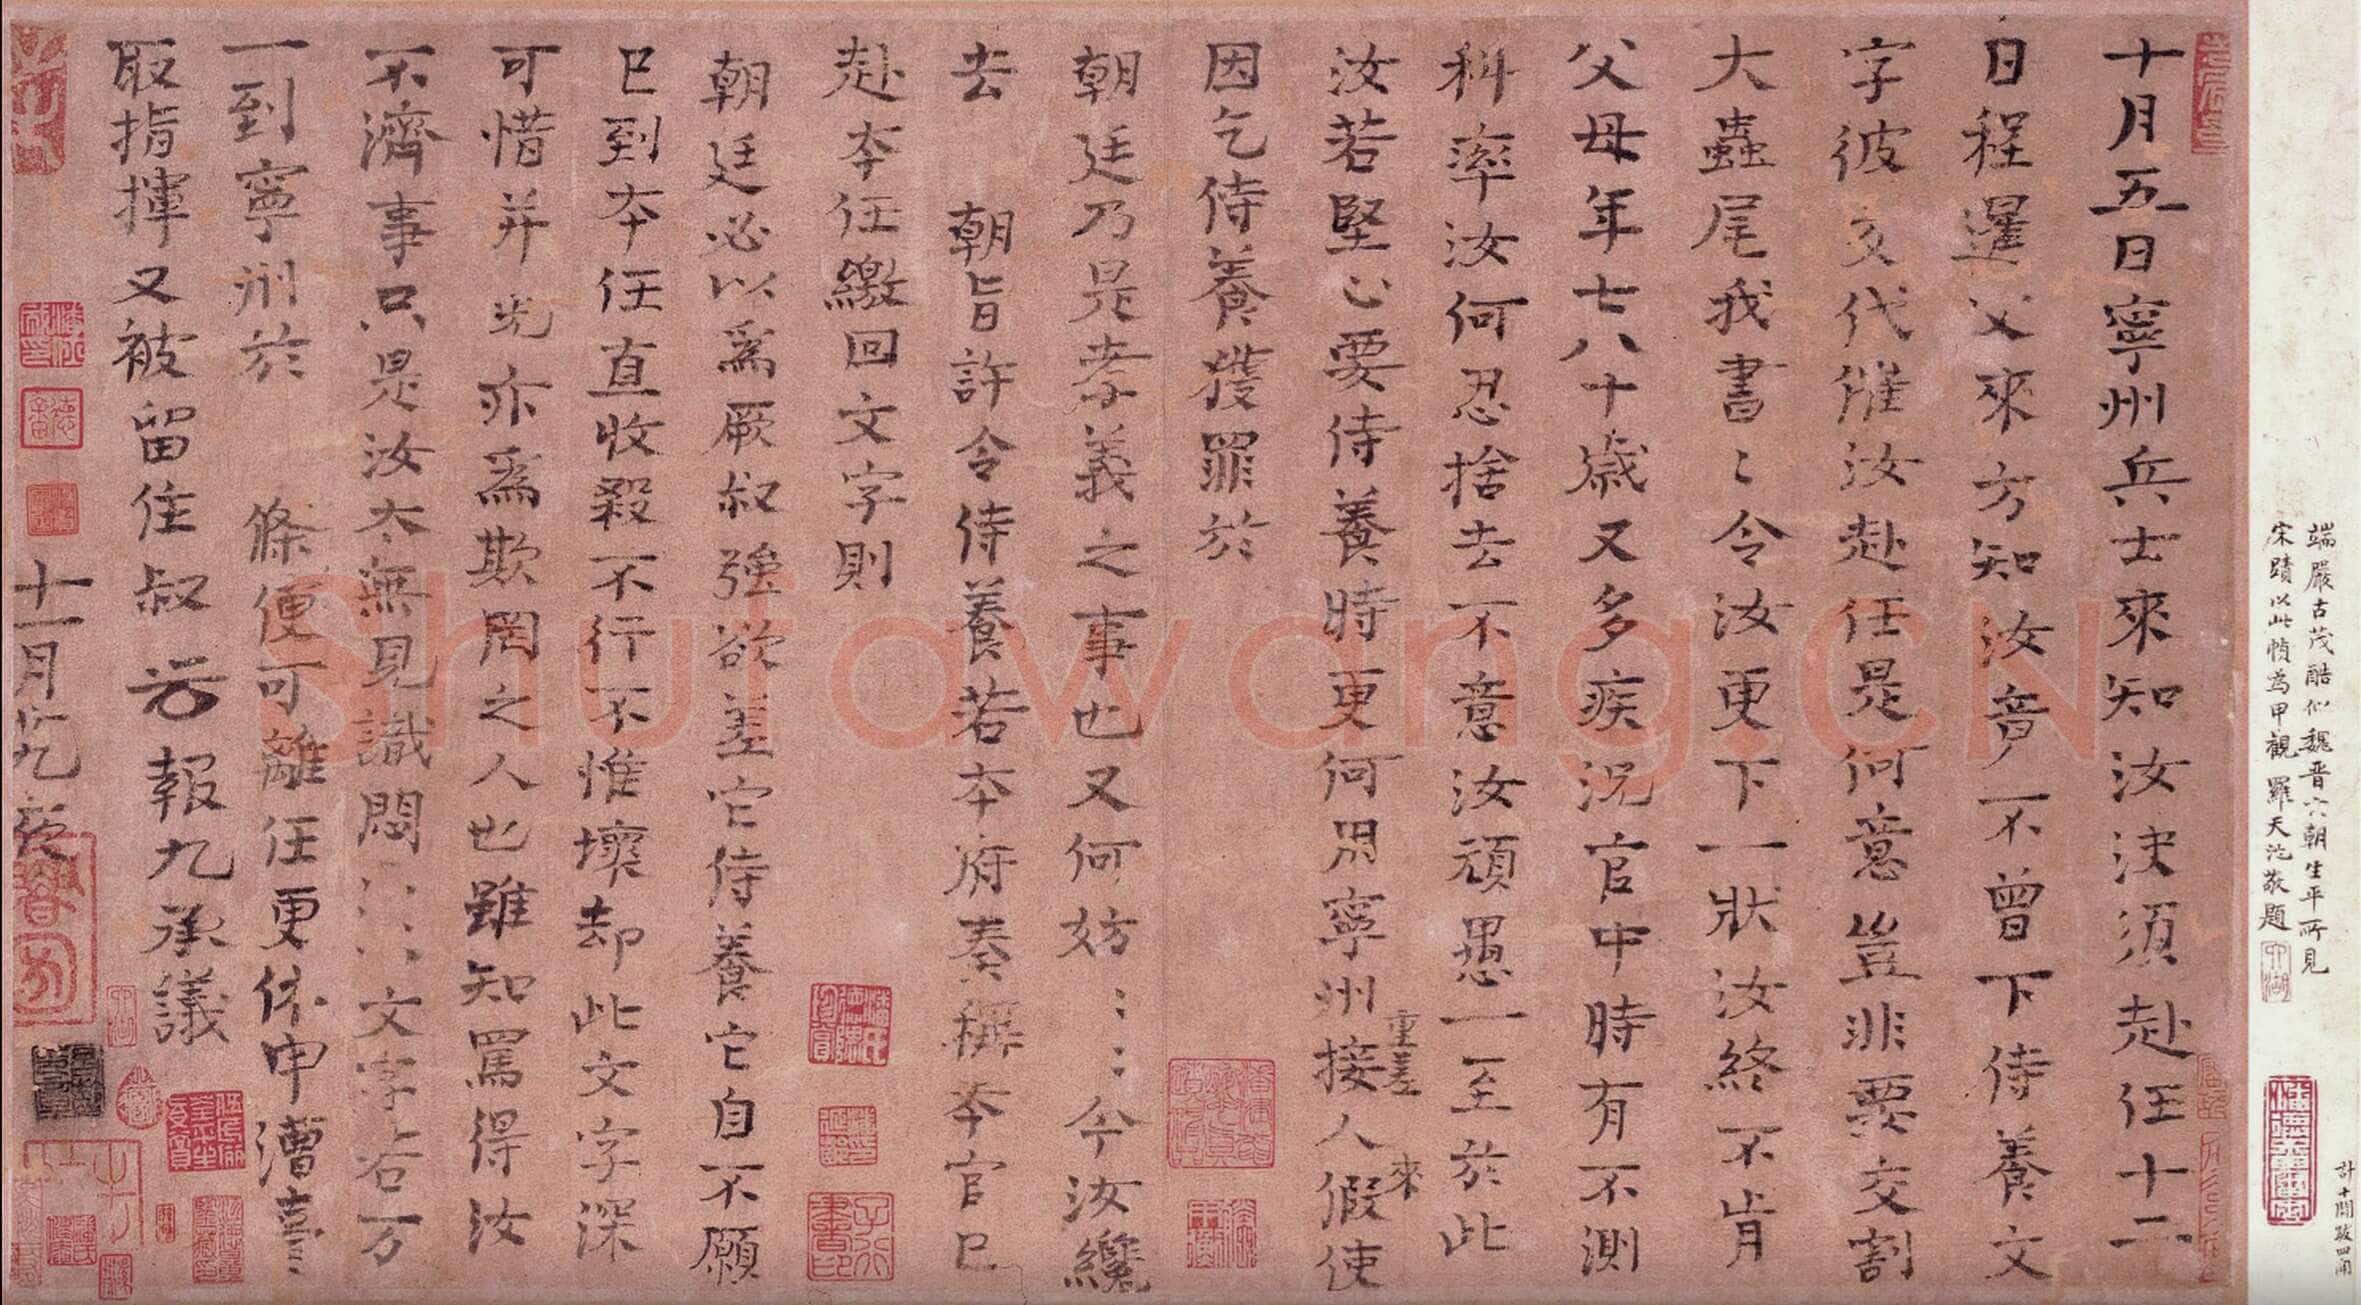 十月五日寧州兵士來知汝決須赴任十二
日程暹父來方知汝竟不曾下侍養文
字彼交代催汝赴任是何意豈非要交割
大蟲尾我書〻令汝更下一狀汝終不肯
父母年七八十歲又多疾況官中時有不測
科率汝何忍捨去不意汝頑愚一至於此
汝若堅心要侍養時更何用寧州接人假使
重差 來
因乞侍養獲罪於
朝廷乃是孝義之事也又何妨〻〻今汝纔
去 朝旨許令侍養若本府奏稱本官已
赴本任繳回文字則
朝廷必以爲厥叔強欲差它侍養它自不願
已到本任直收殺不行不惟壞却此文字深
可惜并光亦爲欺罔之人也雖知罵得汝
不濟事只是汝太無見識悶〻〻文字右万
一到寧州於 條便可離任更休申漕臺
取指揮又被留住叔 報九承議
十一月 夜
端嚴古茂酷似魏晉六朝生平所見
宋蹟以此幀為甲觀羅天池敬題
Shufawang.CN